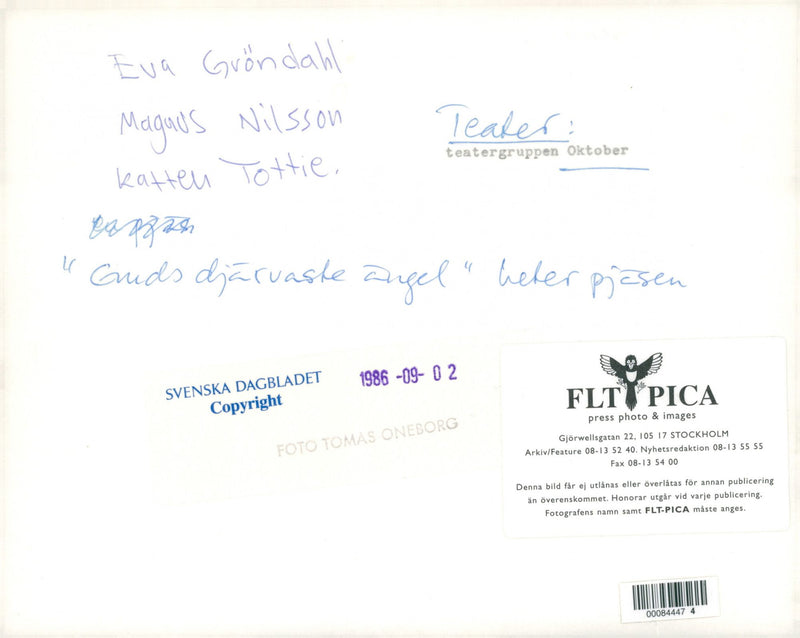 Eva Gröndahl
Magnus Nilsson
Katten Tottie.
Teater:
teatergruppen Oktober
"Guds djärvaste ängel" heter pjäsen
SVENSKA DAGBLADET
Copyright
1986 -09- 0 2
FOTO TOMAS ONEBORG
FLT PICA
press photo & images
Gjörwellsgatan 22, 105 17 STOCKHOLM
Arkiv/Feature 08-13 52 40. Nyhetsredaktion 08-13 55 55
Fax 08-13 54 00
Denna bild får ej utlånas eller överlåtas för annan publicering
än överenskommet. Honorar utgår vid varje publicering.
Fotografens namn samt FLT-PICA måste anges.
00084447 4